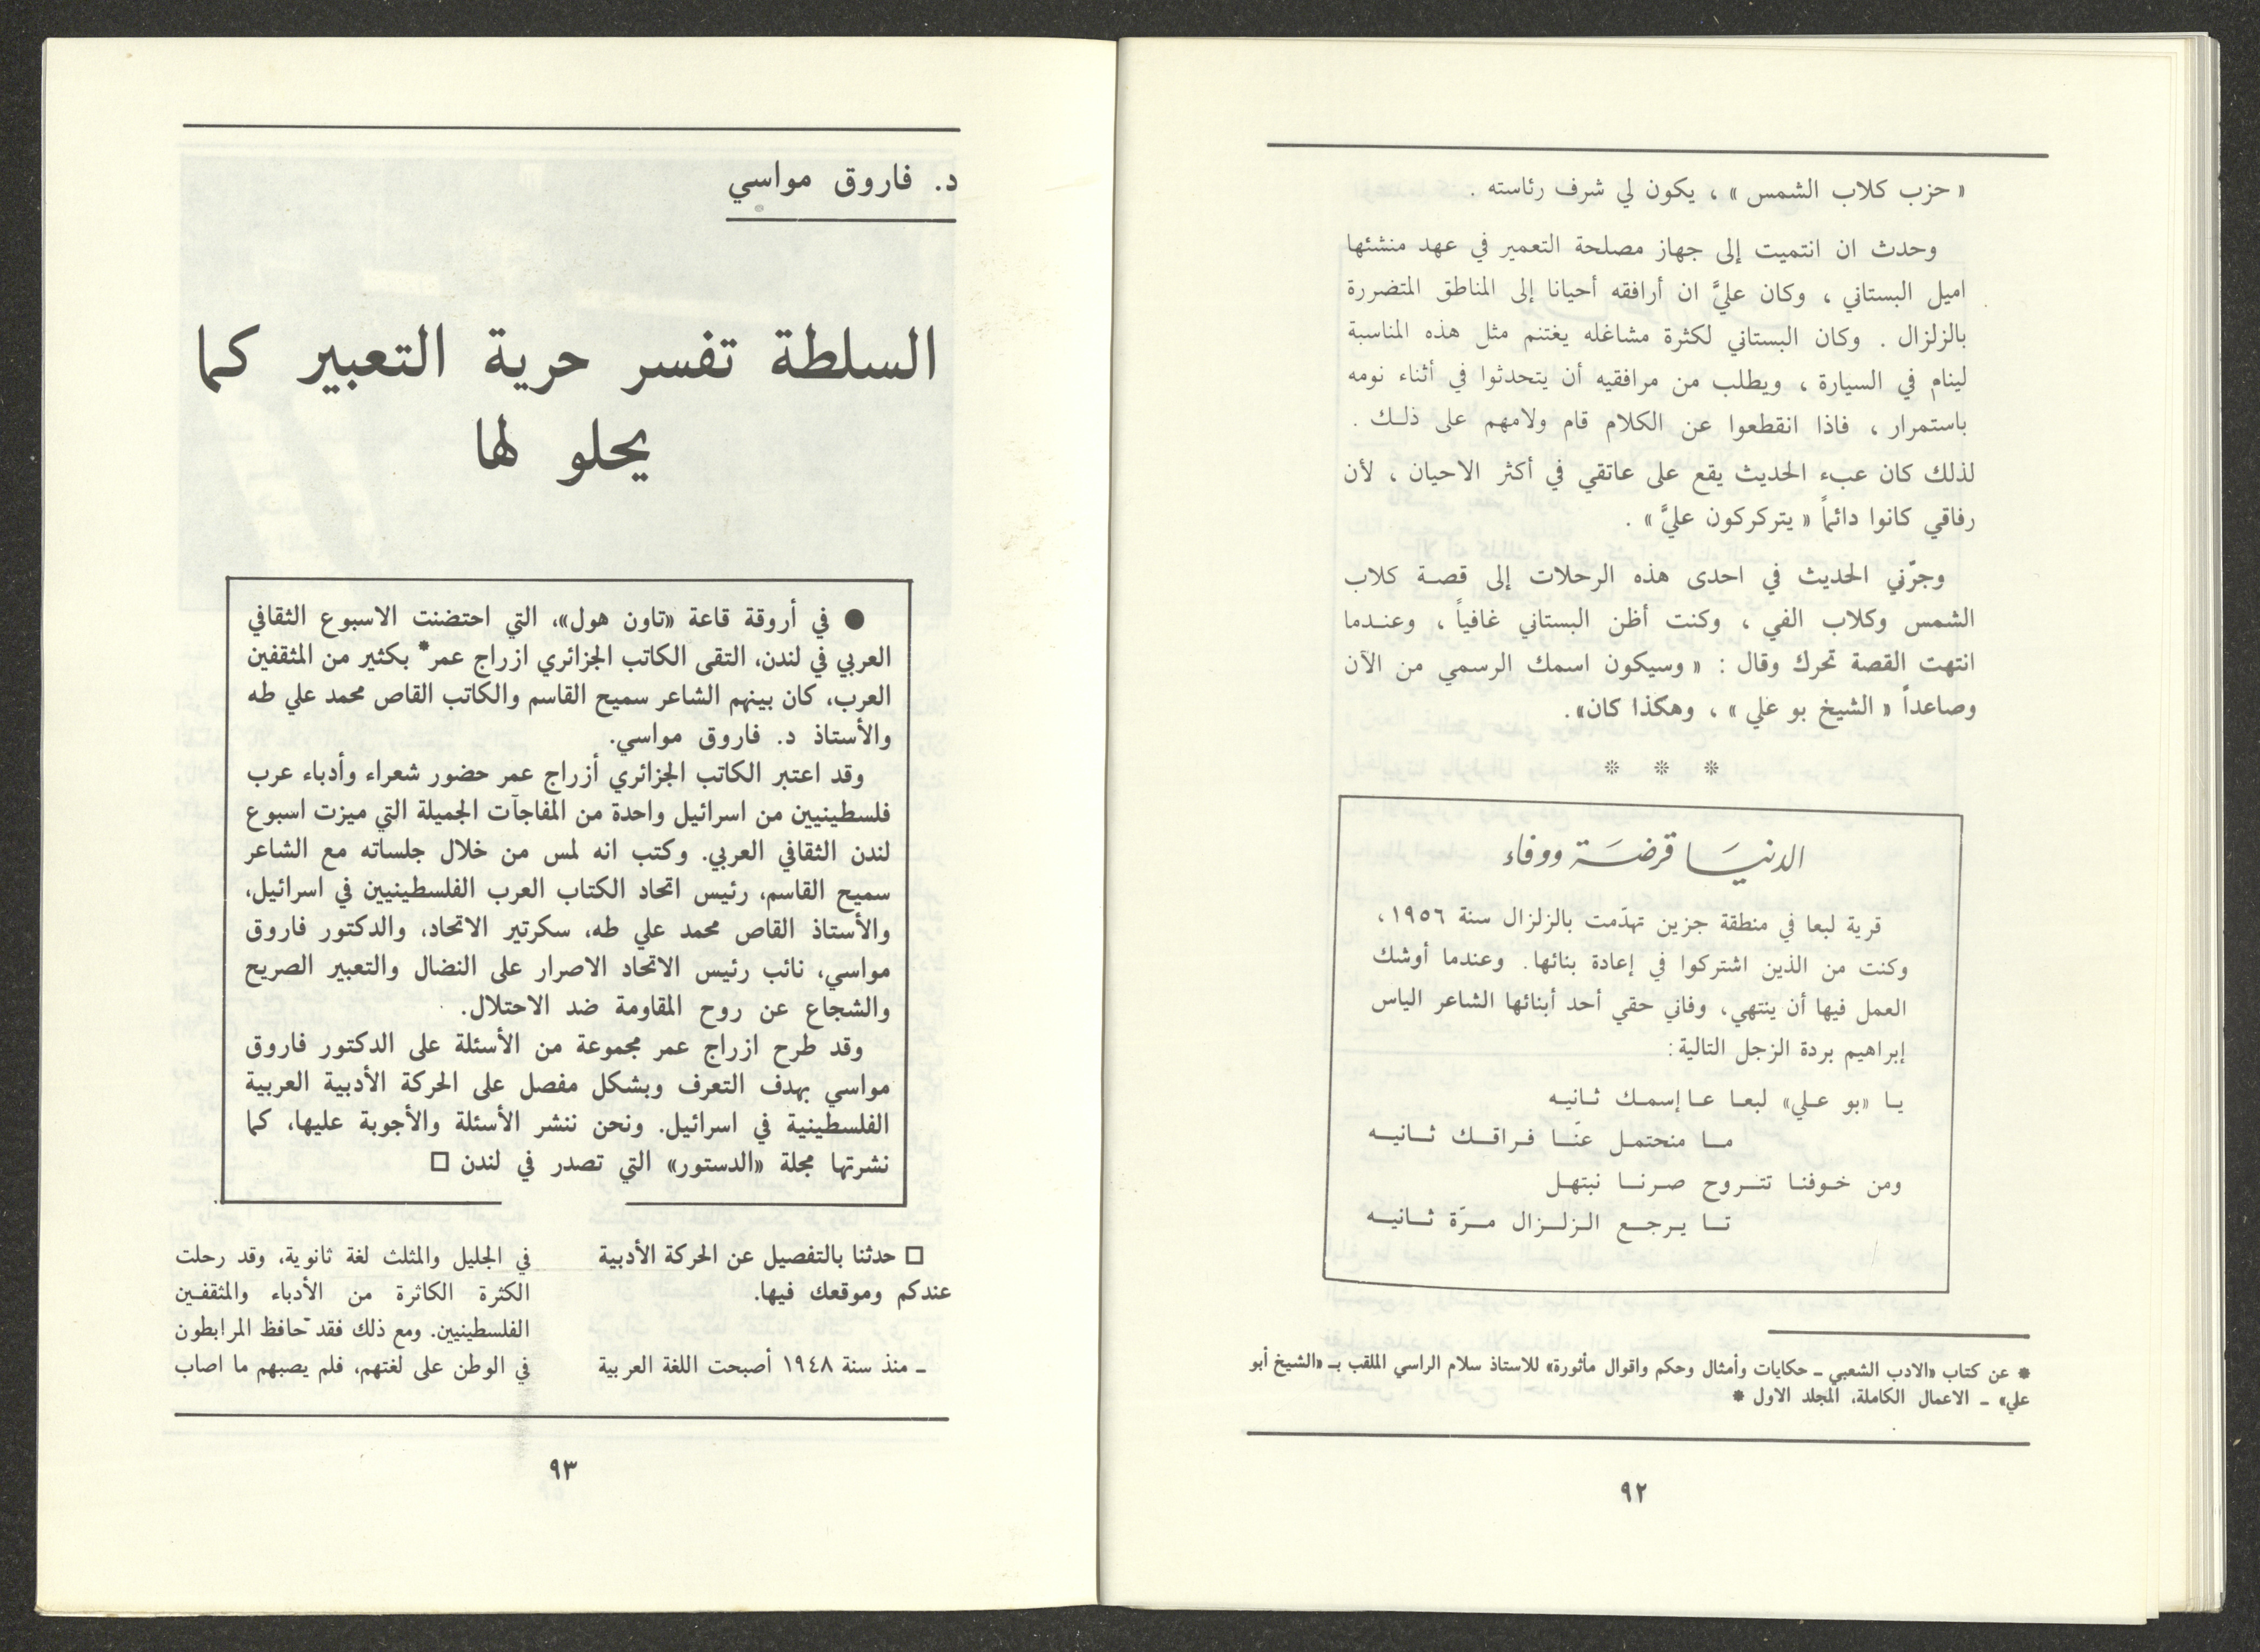 « حزب كلاب الشمس » ، يكون لي شرف رئاسته .
وحدث ان انتميت إلى جهاز مصلحة التعمير في عهد منشئها
اميل البستاني ، وكان عليَّ ان أرافقه أحيانا إلى المناطق المتضررة
بالزلزال . وكان البستاني لكثرة مشاغله يغتنم مثل هذه المناسبة
لينام في السيارة ، ويطلب من مرافقيه أن يتحدثوا في أثناء نومه
باستمرار ، فاذا انقطعوا عن الكلام قام ولامهم على ذلك .
لذلك كان عبء الحديث يقع على عاتقي في أكثر الاحيان ، لأن
رفاقي كانوا دائماً « يتركركون عليَّ » .
وجرّني الحديث في احدى هذه الرحلات إلى قصة كلاب
الشمس وكلاب الفي ، وكنت أظن البستاني غافياً ، وعندما
انتهت القصة تحرك وقال : « وسيكون اسمك الرسمي من الآن
وصاعداً « الشيخ بو علي » ، وهكذا كان».
* * *
الدنيَا قرضَة ووفاء
قرية لبعا في منطقة جزين تهدّمت بالزلزال سنة ١٩٥٦،
وكنت من الذين اشتركوا في إعادة بنائها. وعندما أوشك
العمل فيها أن ينتهي، وفاني حقي أحد أبنائها الشاعر الياس
إبراهيم بردة الزجل التالية:
يا «بو علي» لبعا عا إسمك ثانيه
ما منحتمل عنّا فراقك ثانيه
ومن خوفنا تتروح صرنا نبتهل
تا يرجع الزلزال مرّة ثانيه
* عن كتاب «الادب الشعبي ـ حكايات وأمثال وحكم واقوال مأثورة» للاستاذ سلام الراسي الملقب بـ «الشيخ أبو
علي» ـ الاعمال الكاملة، المجلد الاول *
٩٢
د. فاروق مواسي
السلطة تفسر حرية التعبير كما
يحلو لها
● في أروقة قاعة «تاون هول»، التي احتضنت الاسبوع الثقافي
العربي في لندن، التقى الكاتب الجزائري ازراج عمر* بكثير من المثقفين
العرب، كان بينهم الشاعر سميح القاسم والكاتب القاص محمد علي طه
والأستاذ د. فاروق مواسي.
وقد اعتبر الكاتب الجزائري أزراج عمر حضور شعراء وأدباء عرب
فلسطينيين من اسرائيل واحدة من المفاجآت الجميلة التي ميزت اسبوع
لندن الثقافي العربي. وكتب انه لمس من خلال جلساته مع الشاعر
سميح القاسم، رئيس اتحاد الكتاب العرب الفلسطينيين في اسرائيل،
والأستاذ القاص محمد علي طه، سكرتير الاتحاد، والدكتور فاروق
مواسي، نائب رئيس الاتحاد الاصرار على النضال والتعبير الصريح
والشجاع عن روح المقاومة ضد الاحتلال.
وقد طرح ازراج عمر مجموعة من الأسئلة على الدكتور فاروق
مواسي بهدف التعرف وبشكل مفصل على الحركة الأدبية العربية
الفلسطينية في اسرائيل. ونحن ننشر الأسئلة والأجوبة عليها، كما
نشرتها مجلة «الدستور» التي تصدر في لندن □
□ حدثنا بالتفصيل عن الحركة الأدبية
عندكم وموقعك فيها.
ـ منذ سنة ١٩٤٨ أصبحت اللغة العربية
في الجليل والمثلث لغة ثانوية، وقد رحلت
الكثرة الكاثرة من الأدباء والمثقفين
الفلسطينيين. ومع ذلك فقد حافظ المرابطون
في الوطن على لغتهم، فلم يصبهم ما اصاب
٩٣